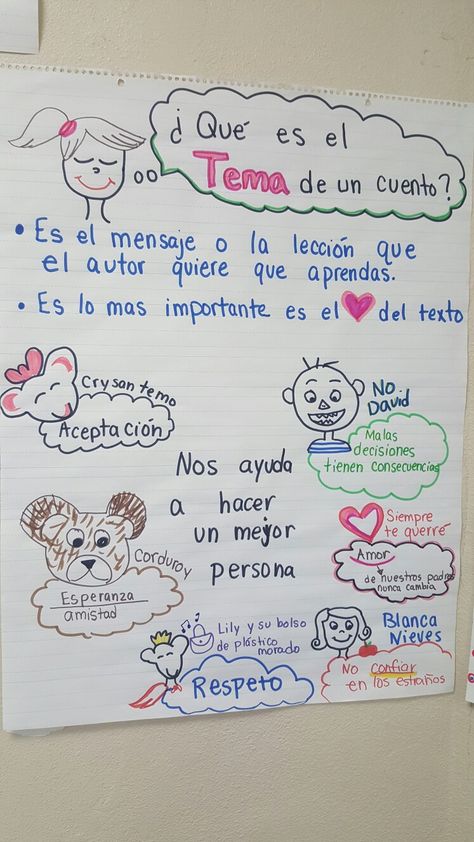 ¿Qué es el
Tema de un cuento?
• Es el mensaje o la lección que
el autor quiere que aprendas.
• Es lo mas importante es el ♥ del texto
Crysantemo
Aceptación
No
David
Malas
decisiones
tienen consecuencias
Nos ayuda
a hacer
un mejor
persona
Corduroy
Esperanza
amistad
Siempre
te querré
Amor
de nuestros padres
nunca cambia
Lily y su bolso
de plástico
morado
Respeto
Blanca
Nieves
No confiar
en los estraños